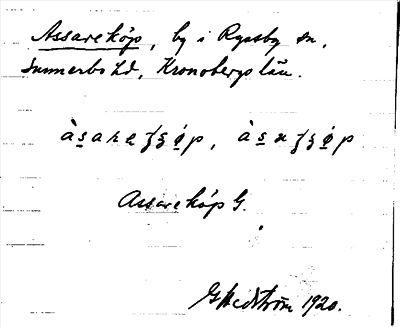 Assareköp, by i Ryssby sn,
Sunnerbo hd, Kronobergs län.
Assareköp G.
GHedström 1920.